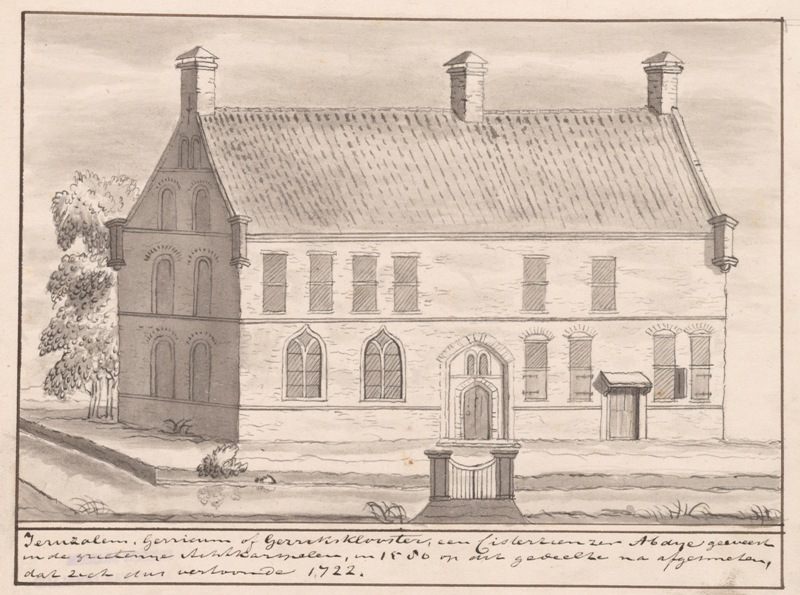 Jeruzalem, Gerricum of Gerriksklooster, een Cistertien zer Abdye geweest
in de grietenye Achtkarspelen, in 1580 op dit gedeelte na afgesmeten,
dat zich dus vertoonde 1722.